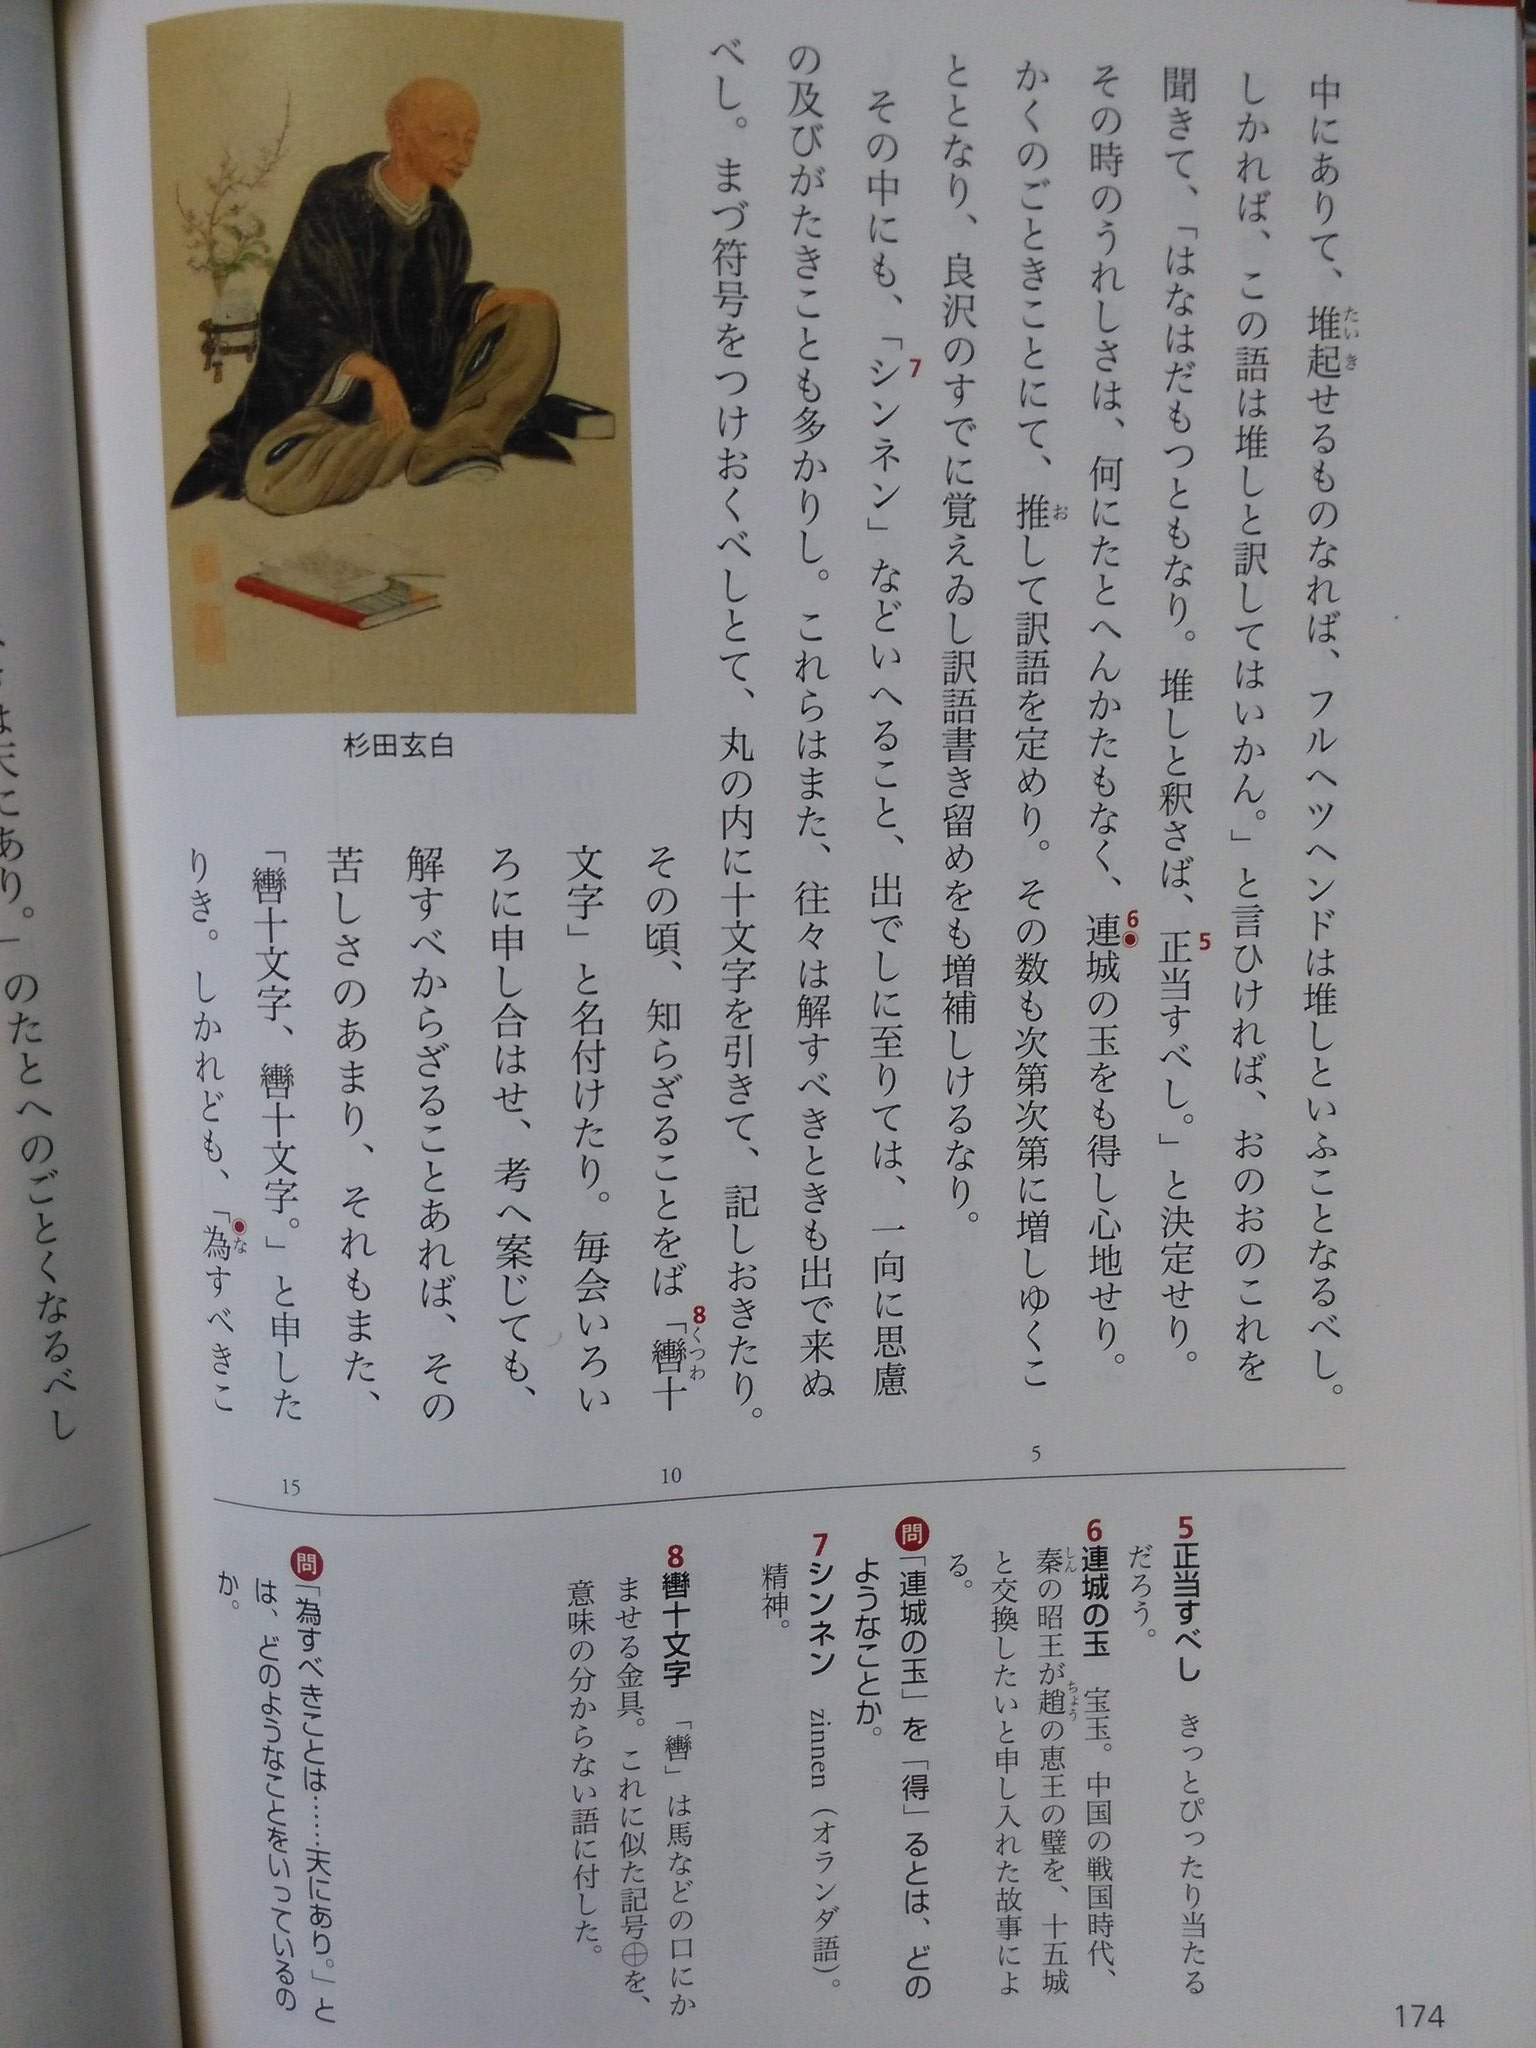 中にありて、堆起せるものなれば、フルヘツヘンドは堆しといふことなるべし。
しかれば、この語は堆しと訳してはいかん。」と言ひければ、おのおのこれを
聞きて、「はなはだもつともなり。堆しと釈さば、正当すべし。」と決定せり。
その時のうれしさは、何にたとへんかたもなく、連城の玉をも得し心地せり。
かくのごときことにて、推して訳語を定めり。その数も次第次第に増しゆくこ
ととなり、良沢のすでに覚えゐし訳語書き留めをも増補しけるなり。
その中にも、「シンネン」などいへること、出でしに至りては、一向に思慮
の及びがたきことも多かりし。これらはまた、往々は解すべきときも出で来ぬ
べし。まづ符号をつけおくべしとて、丸の内に十文字を引きて、記しおきたり。
その頃、知らざることをば「轡十
文字」と名付けたり。毎会いろい
ろに申し合はせ、考へ案じても、
解すべからざることあれば、その
苦しさのあまり、それもまた、
「轡十文字、轡十文字。」と申した
りき。しかれども、「為すべきこ
たいき
お
くつわ
な
5
6
7
8
5
10
15
杉田玄白
5 正当すべし きっとぴったり当たる
だろう。
6 連城の玉 宝玉。中国の戦国時代、
秦の昭王が趙の恵王の璧を、十五城
と交換したいと申し入れた故事によ
る。
しん
ちょう
問「連城の玉」を「得」るとは、どの
ようなことか。
7 シンネン zinnen（オランダ語）。
精神。
8 轡十文字 「轡」は馬などの口にか
ませる金具。これに似た記号⊕を、
意味の分からない語に付した。
問「為すべきことは……天にあり。」と
は、どのようなことをいっているの
か。
174
は天にあり。」のたとへのごとくなるべし